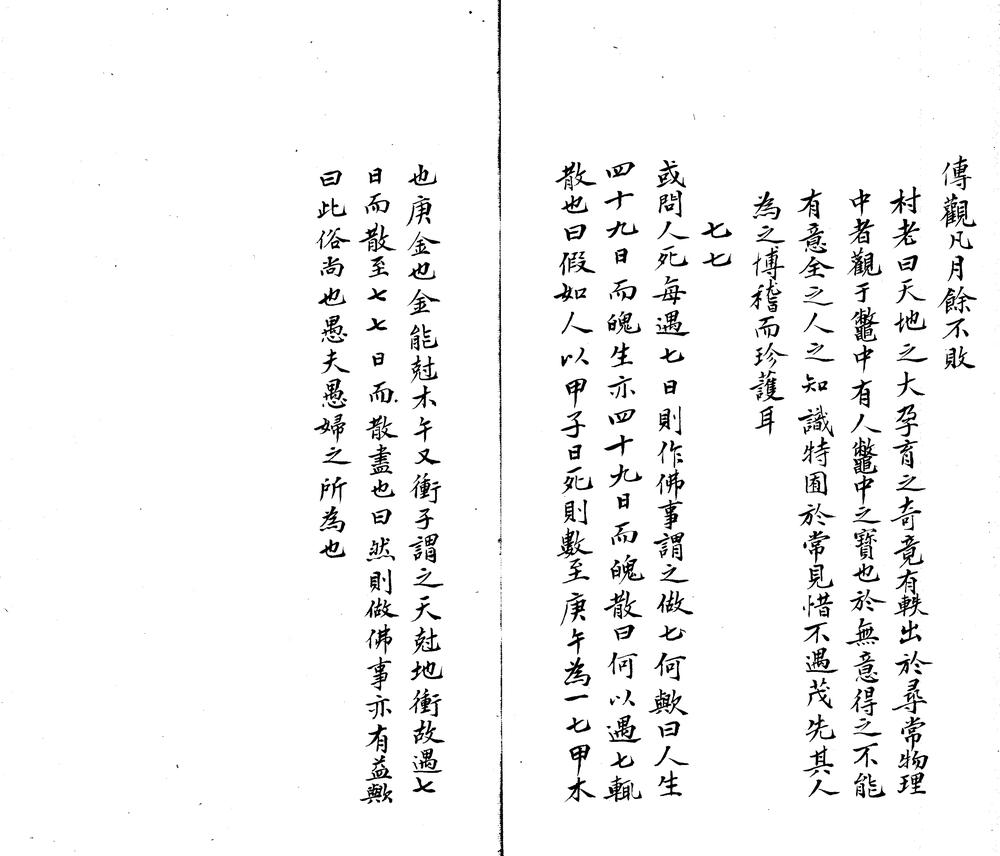 傳觀凡月餘不敗
村老曰天地之大孕育之奇竟有軼出於尋常物理
中者觀于鼈中有人鼈中之寶也於無意得之不能
有意全之人之知識特囿於常見惜不遇茂先其人
為之博稽而珍護耳
七七
或問人死每遇七日則作佛事謂之做七何歟曰人生
四十九日而魄生亦四十九日而魄散曰何以遇七輒
散也曰假如人以甲子日死則數至庚午為一七甲木
也庚金也金能尅木午又衝子謂之天尅地衝故遇七
日而散至七七日而散盡也曰然則做佛事亦有益歟
曰此俗尚也愚夫愚婦之所為也